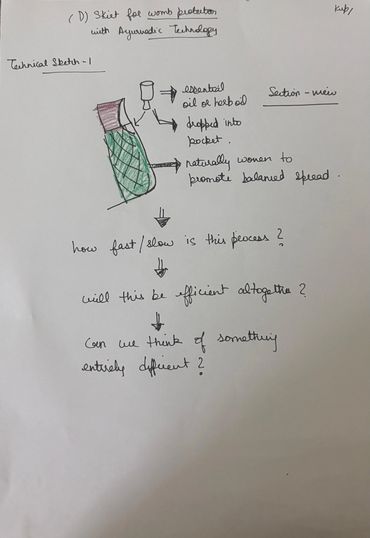 (D) Skirt for womb protection
with Ayurvedic Technology
Technical Sketch-1
Section-view
essential
oil or herb oil
dropped into
pocket.
naturally women to
promote balanced spread.
how fast/slow is this process?
will this be efficient altogether?
Can we think of something
entirely different?